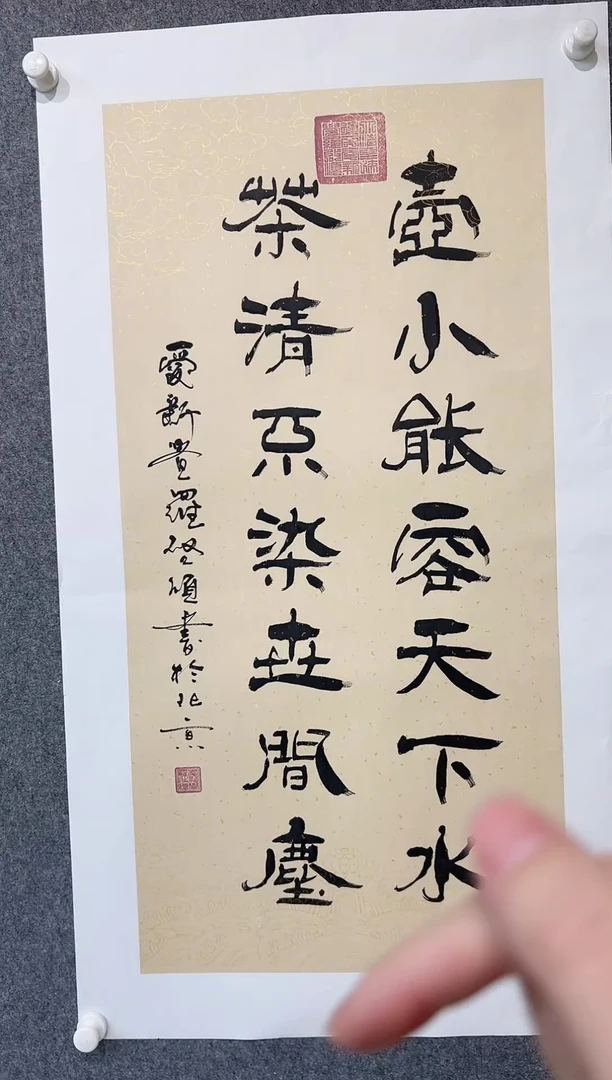 壺小能容天下水
茶清不染世間塵
愛新覺羅書於北京